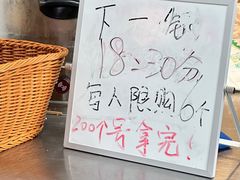 下一锅
18:30分
每人限购6个
200个号拿完!